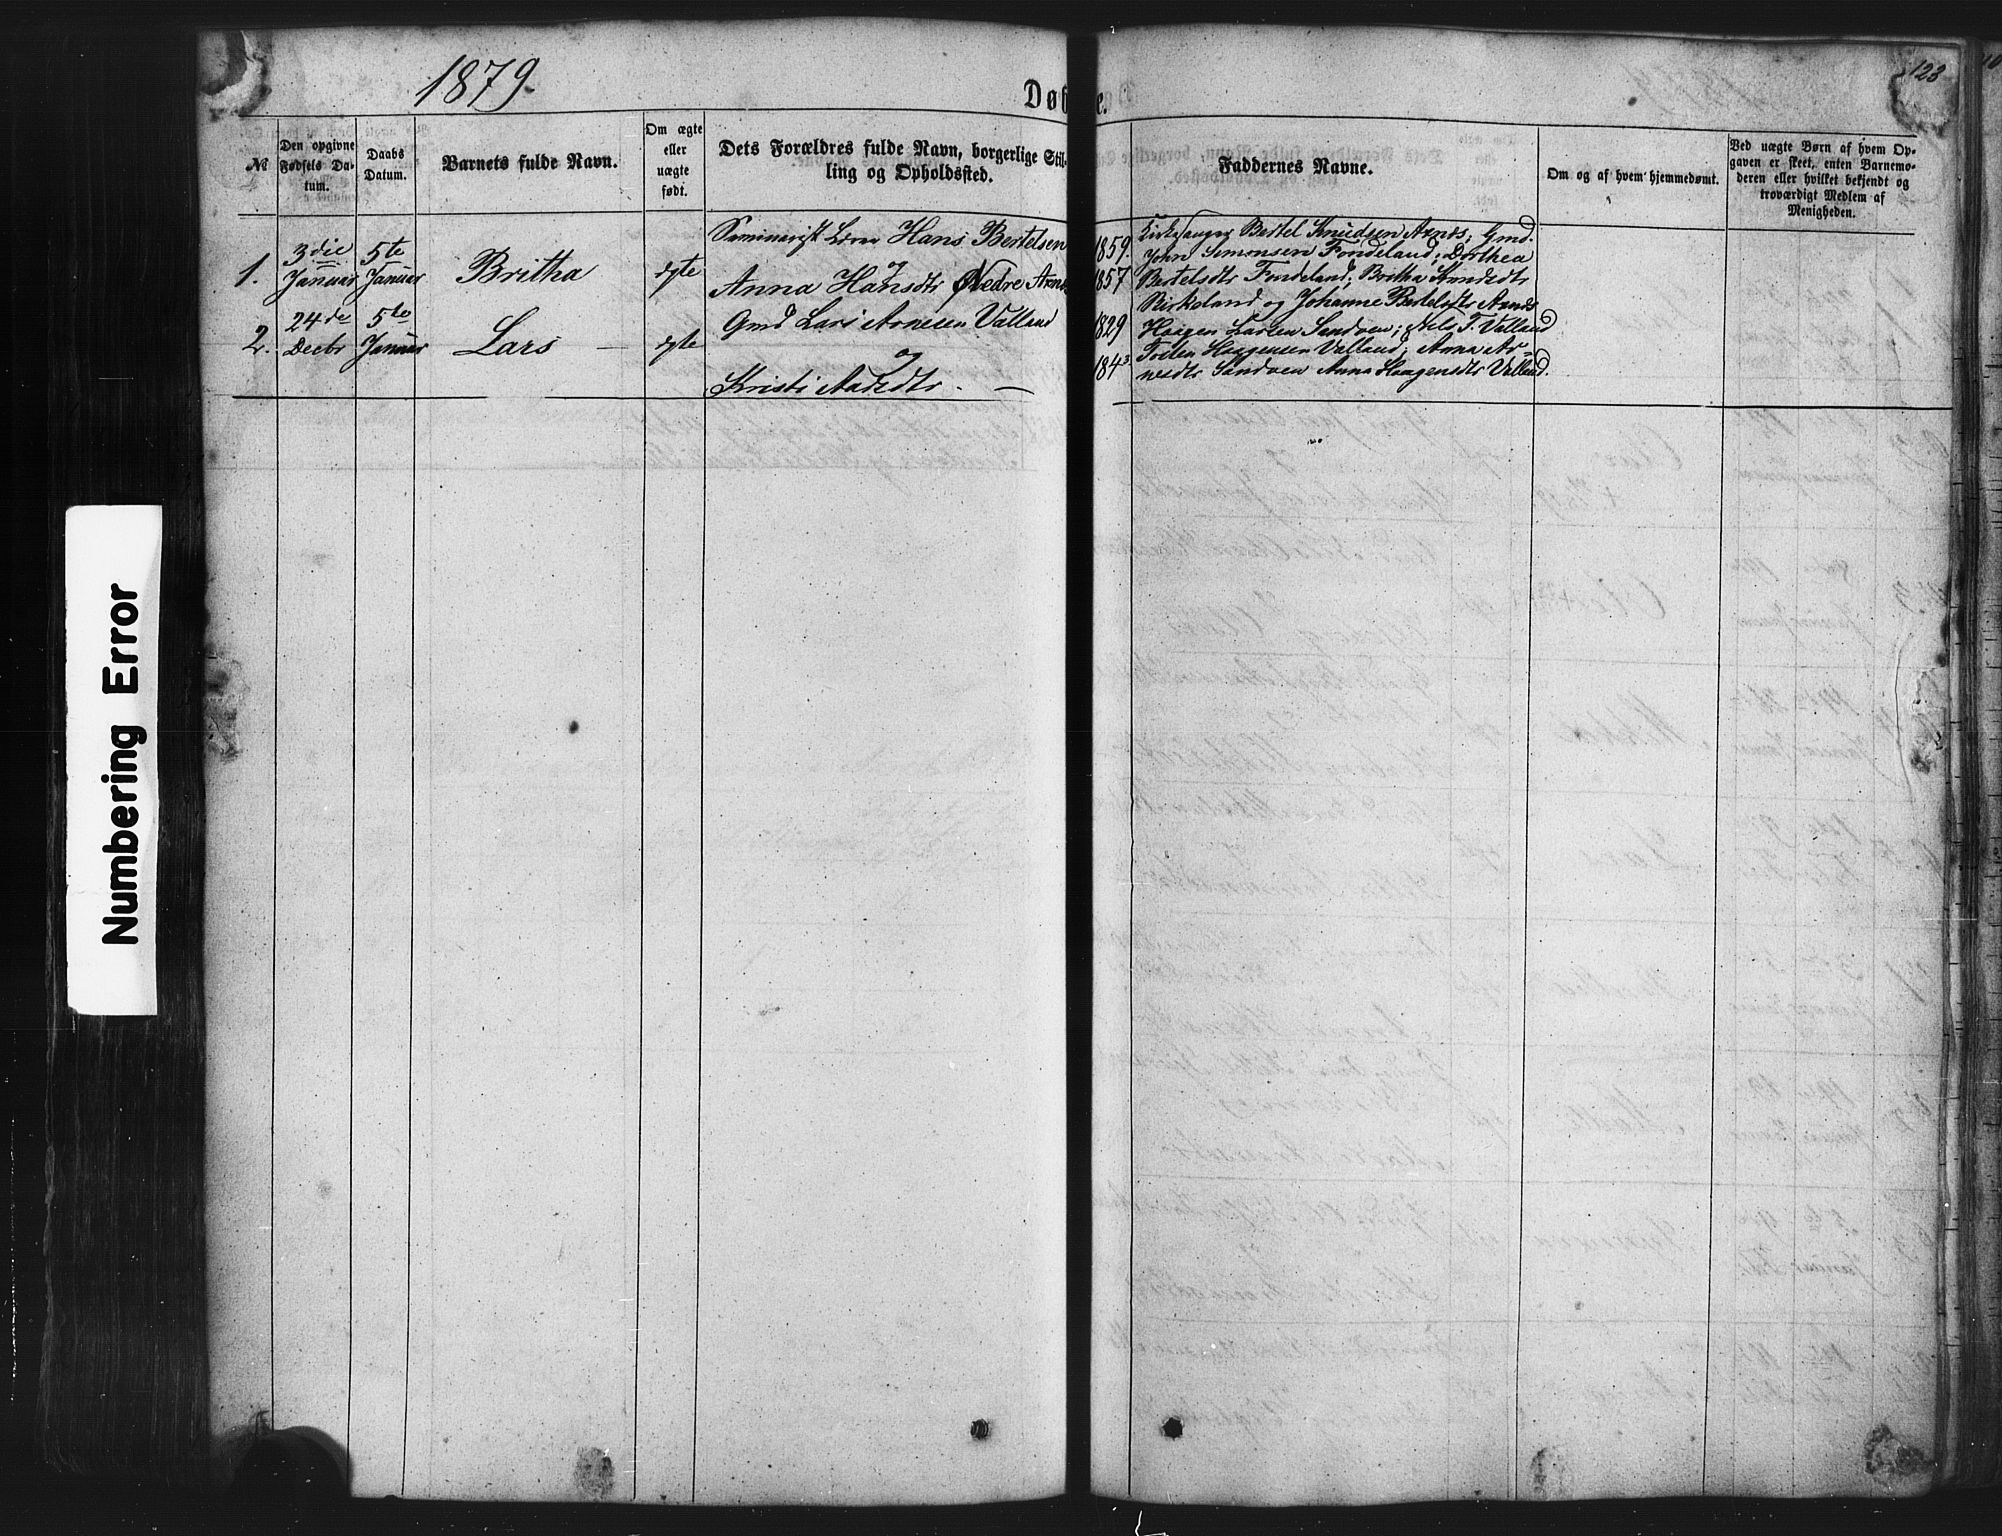 1879.
Døbte.
123
№
Den opgivne Fødsels Datum.
Daabs Datum.
Barnets fulde Navn.
Om ægte eller uægte født.
Dets Forældres fulde Navn, borgerlige Stilling og Opholdssted.
Faddernes Navne.
Om og af hvem hjemmedøbt.
Ved uægte Børn af hvem Opgaven er skeet, enten Barnemoderen eller hvilket bekjendt og troværdigt Medlem af Menigheden.
1. 3die Januar 5te Januar Britha ægte
Seminarist Lærer Hans Bertelsen 1859.
og
Anna Hansdtr Nedre Aznes 1857
Kirkesanger Bertel Knudsen Aznes; Gmd.
John Simonsen Fondeland; Dorthea
Bertelsdtr Fondeland; Britha Knudsdtr
Birkeland og Johanne Bertelsdtr Aznes
2. 24de Decbr 5te Januar Lars — ægte
Gmd Lars Arnesen Valland 1829
og
Kristi dtr. — 1843
Haagen Larsen Sandven; Nels T. Valland
Haagensen Valland; Anna Arnesdtr Sandven Anna Haagensdtr Valland.
Numbering Error